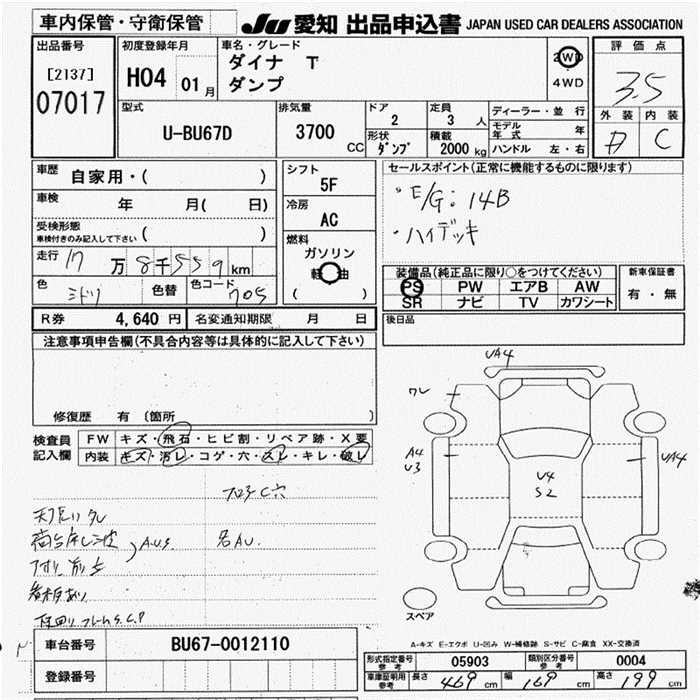 車内保管・守衛保管
JU 愛知 出品申込書 JAPAN USED CAR DEALERS ASSOCIATION
出品番号
[2137]
07017
初度登録年月
H04 01月
車名・グレード
ダイナ T
ダンプ
2WD
4WD
評価点
3.5
外装 内装
C
型式
U-BU67D
排気量
3700 CC
ドア
2
定員
3 人
形状
ダンプ
積載
2000 kg
ディーラー・並行
モデル年式 年
ハンドル 左・右
車歴
自家用・( )
車検
年 月( 日)
受検形態
車検付きのみ記入して下さい ( )
走行 17万8千559km
色 ミドリ 色替 色コード 705
シフト
5F
冷房
AC
燃料
ガソリン
軽油
( )
セールスポイント(正常に機能するものに限ります)
・E/G:14B
・ハイデッキ
装備品(純正品に限り○をつけてください)
PS PW エアB AW
SR ナビ TV カワシート
新車保証書
有・無
R券 4,640円 名変通知期限 月 日
後日品
注意事項申告欄(不具合内容等は具体的に記入して下さい)
修復歴 有 〔箇所 〕
検査員記入欄
FW キズ・飛石・ヒビ割・リペア跡・X要
内装 キズ・汚レ・コゲ・穴・スレ・キレ・破レ
フロアC穴
各AU.
A.U.S.
UA4
ワレ
A4
U3
U4
S2
UA4
スペア
A-キズ E-エクボ U-凹み W-補修跡 S-サビ C-腐食 XX-交換済
車台番号 BU67-0012110
登録番号
形式指定番号参考 05903 類別区分番号参考 0004
車庫証明用参考 長さ 469cm 巾 169cm 高さ 199cm